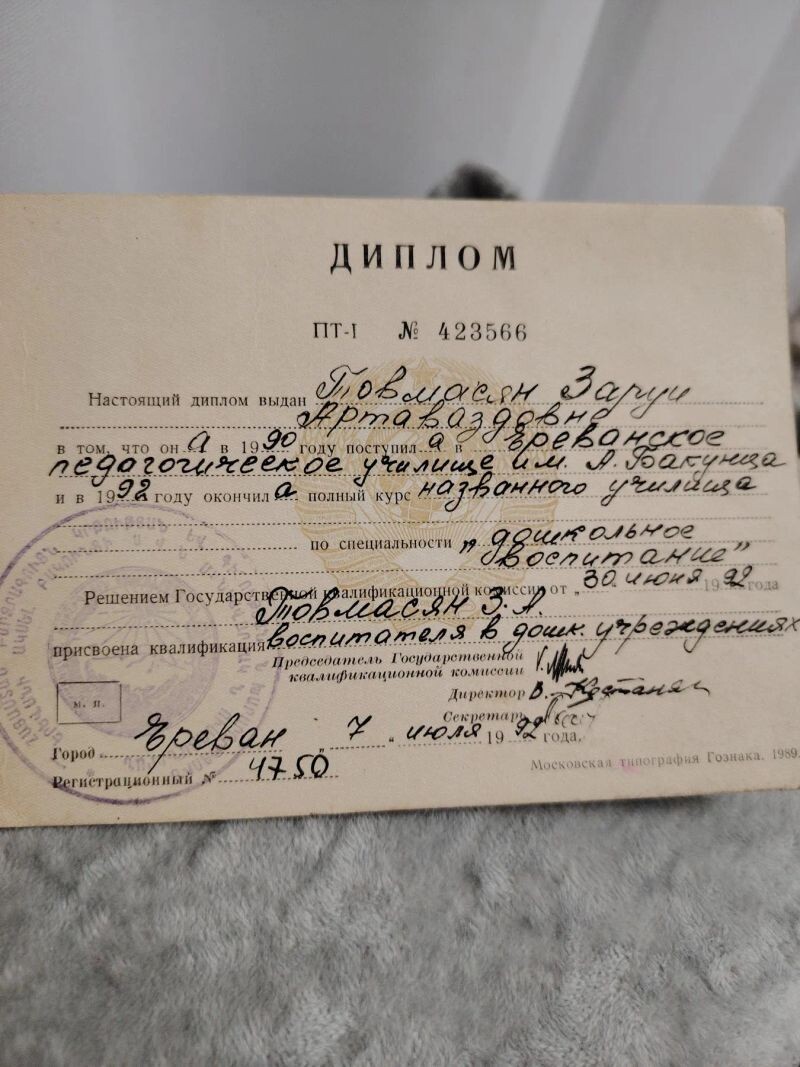 ДИПЛОМ
ПТ-I № 423566
Настоящий диплом выдан Товмасян Заруи
Артаваздовне
в том, что он а в 1990 году поступил а в Ереванское
педагогическое училище им. А. Бакунца
и в 1992 году окончил а полный курс названного училища
по специальности „дошкольное
воспитание"
Решением Государственной квалификационной комиссии от „30 июня 1992 года
Товмасян З. А.
присвоена квалификация воспитателя в дошк. учреждениях
Председатель Государственной
квалификационной комиссии
Директор
Секретарь
м. п.
Город Ереван „ 7 " июля 1992 года.
Регистрационный № 4750
Московская типография Гознака. 1989.